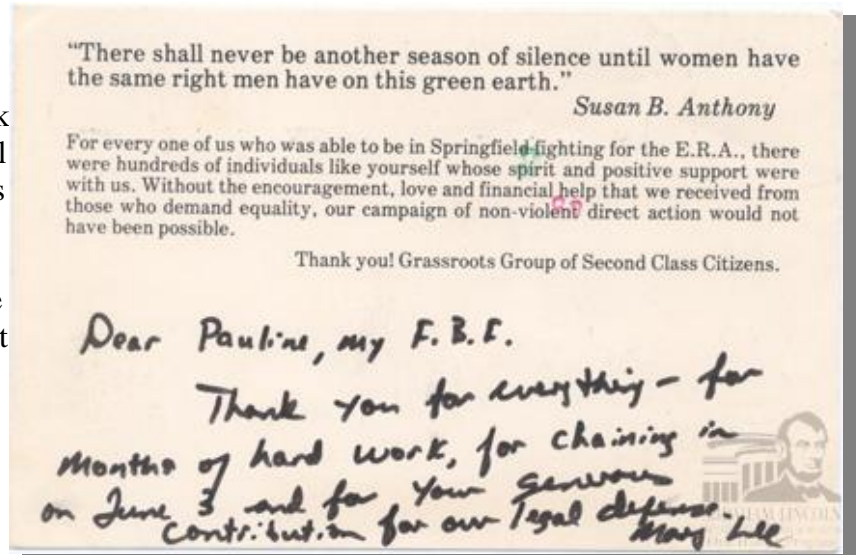 “There shall never be another season of silence until women have
the same right men have on this green earth.”
Susan B. Anthony
For every one of us who was able to be in Springfield fighting for the E.R.A., there
were hundreds of individuals like yourself whose spirit and positive support were
with us. Without the encouragement, love and financial help that we received from
those who demand equality, our campaign of non-violent direct action would not
have been possible.
Thank you! Grassroots Group of Second Class Citizens.
Dear Pauline, my F.B.I.
Thank you for everything – for
months of hard work, for chaining in
on June 3 and for your generous
contribution for our legal defense.
Mary Lee